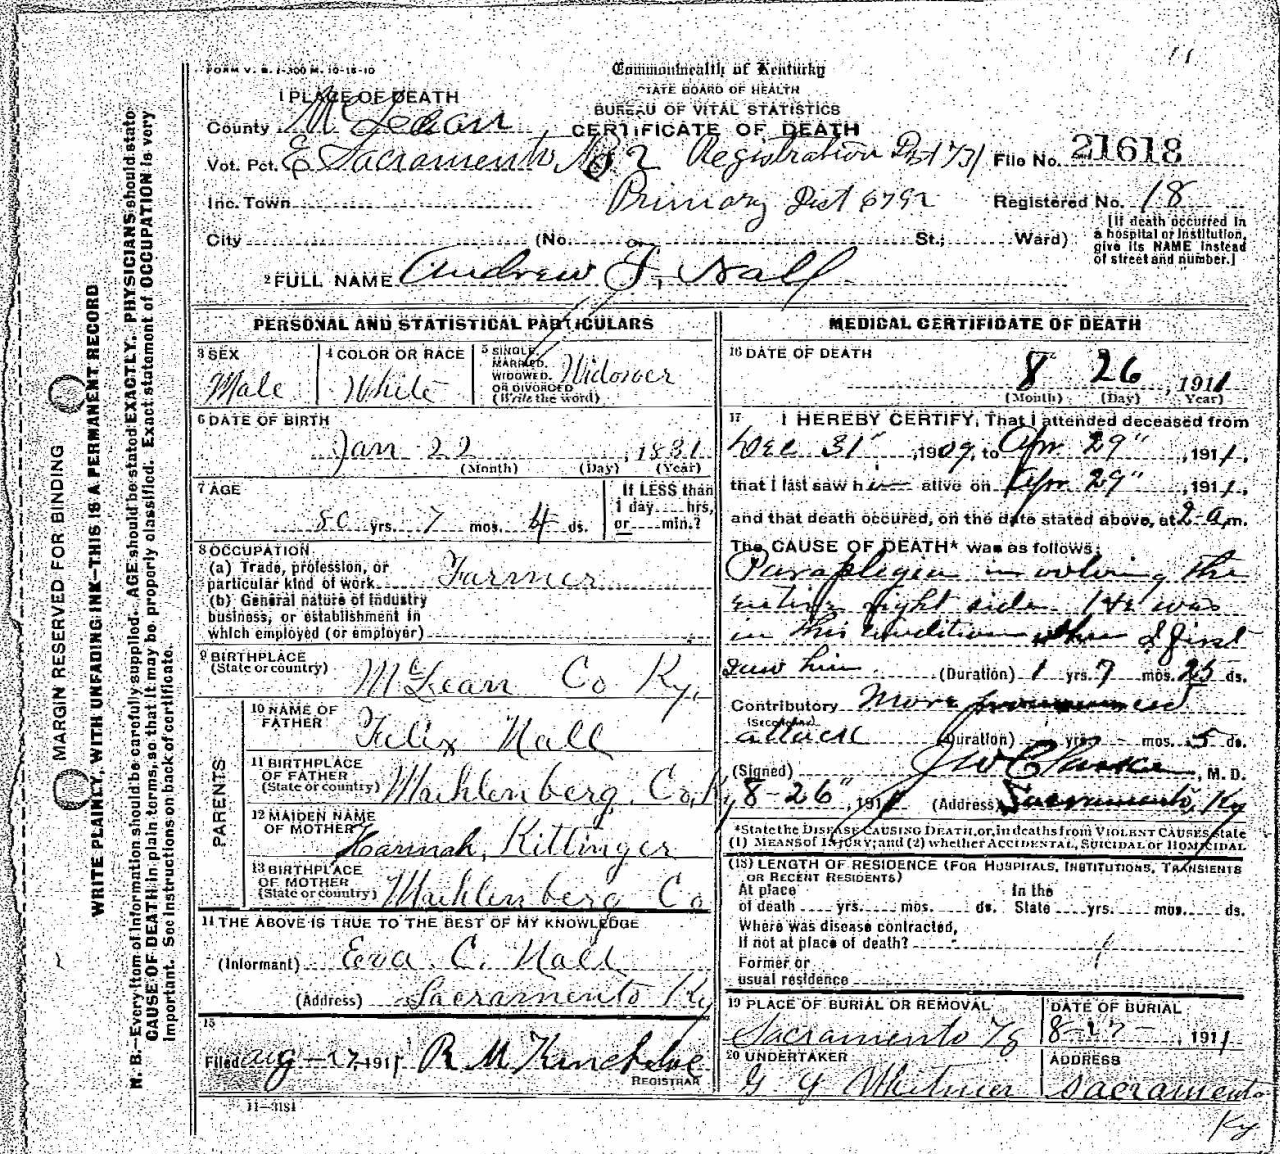 FORM V. S. 1-300 M. 10-15-10
Commonwealth of Kentucky
STATE BOARD OF HEALTH
BUREAU OF VITAL STATISTICS
CERTIFICATE OF DEATH
1 PLACE OF DEATH
County McLean
Vot. Pct. E Sacramento No 2 Registration Dist 731 File No. 21618
Inc. Town Primary Dist 6792 Registered No. 18
City (No. St.; Ward)
[If death occurred in
a hospital or institution,
give its NAME instead
of street and number.]
2 FULL NAME Andrew J. Nall
PERSONAL AND STATISTICAL PARTICULARS
3 SEX
Male
4 COLOR OR RACE
White
5 SINGLE,
MARRIED,
WIDOWED,
OR DIVORCED
(Write the word)
Widower
6 DATE OF BIRTH
Jan 22, 1831
(Month) (Day) (Year)
7 AGE
80 yrs. 7 mos. 4 ds.
If LESS than
1 day hrs,
or min.?
8 OCCUPATION
(a) Trade, profession, or
particular kind of work Farmer
(b) General nature of industry
business, or establishment in
which employed (or employer)
9 BIRTHPLACE
(State or country)
McLean Co Ky.
PARENTS
10 NAME OF
FATHER
Felix Nall
11 BIRTHPLACE
OF FATHER
(State or country)
Muhlenberg. Co, Ky
12 MAIDEN NAME
OF MOTHER
Hannah, Kittinger
13 BIRTHPLACE
OF MOTHER
(State or country)
Muhlenberg Co
14 THE ABOVE IS TRUE TO THE BEST OF MY KNOWLEDGE
(Informant) Eva C. Nall
(Address) Sacramento Ky
15
Filed Aug-27, 1911 R M Kincheloe
REGISTRAR
11-3181
MEDICAL CERTIFICATE OF DEATH
16 DATE OF DEATH
8 26, 1911
(Month) (Day) (Year)
17 I HEREBY CERTIFY, That I attended deceased from
Dec 31", 1909, to Apr 29", 1911,
that I last saw him alive on Apr 29", 1911,
and that death occured, on the date stated above, at 2-a.m.
The CAUSE OF DEATH* was as follows:
Paraplegia involving the
entire right side. He was
in this condition when I first
saw him. (Duration) 1 yrs. 7 mos. 25 ds.
Contributory More pronounced
(Secondary)
attack (Duration) - yrs. - mos. 5 ds.
(Signed) M. D.
8-26", 1911 (Address) Sacramento, Ky
*State the DISEASE CAUSING DEATH, or, in deaths from VIOLENT CAUSES, state
(1) MEANS of INJURY; and (2) whether ACCIDENTAL, SUICIDAL or HOMICIDAL
(18) LENGTH OF RESIDENCE (FOR HOSPITALS, INSTITUTIONS, TRANSIENTS
OR RECENT RESIDENTS)
At place In the
of death yrs. mos. ds. State yrs. mos. ds.
Where was disease contracted,
If not at place of death?
Former or
usual residence
19 PLACE OF BURIAL OR REMOVAL
Sacramento Ky
DATE OF BURIAL
8-27-, 1911
20 UNDERTAKER
G Y Whitmer
ADDRESS
Sacramento
Ky
MARGIN RESERVED FOR BINDING
WRITE PLAINLY, WITH UNFADING INK—THIS IS A PERMANENT RECORD
N. B.—Every item of information should be carefully supplied. AGE should be stated EXACTLY. PHYSICIANS should state
CAUSE OF DEATH in plain terms, so that it may be properly classified. Exact statement of OCCUPATION is very
important. See instructions on back of certificate.